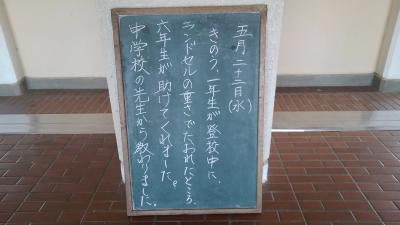 五月二十三日(水)
きのう、一年生が登校中に、
ランドセルの重さでたおれたところ、
六年生が助けてくれました。
中学校の先生から教わりました。